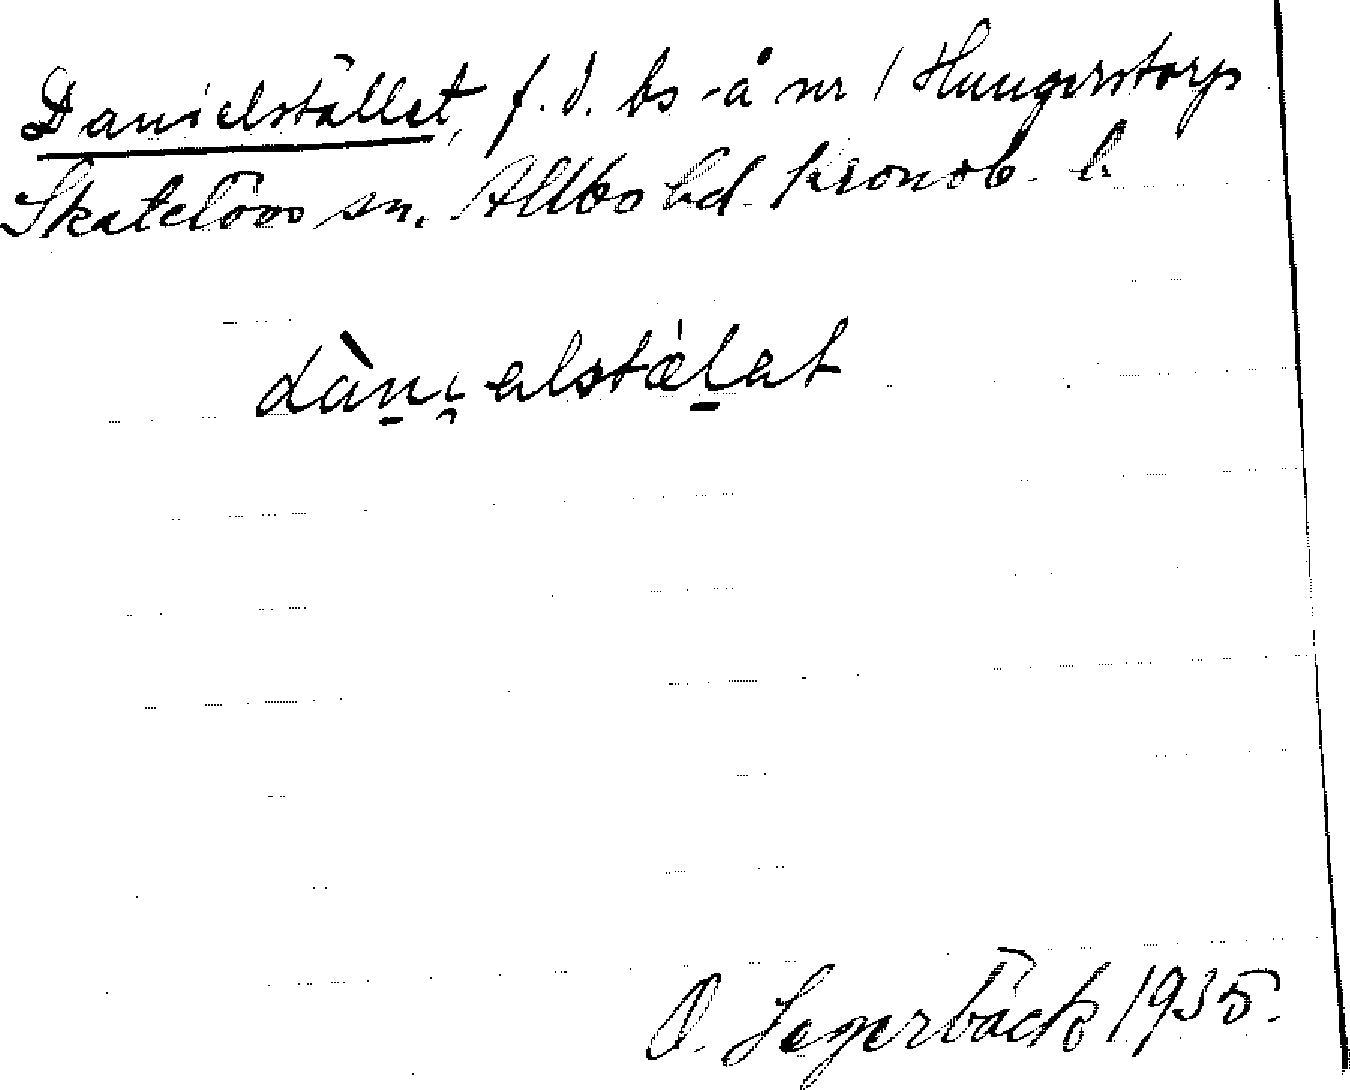 Danielstället, f.d. bs-å nr 1 Hungerstorp
Skatelövs sn. Allbo hd. Kronob. l.
dàni̯əlstæ̀lət
O. Segerbäck 1935.